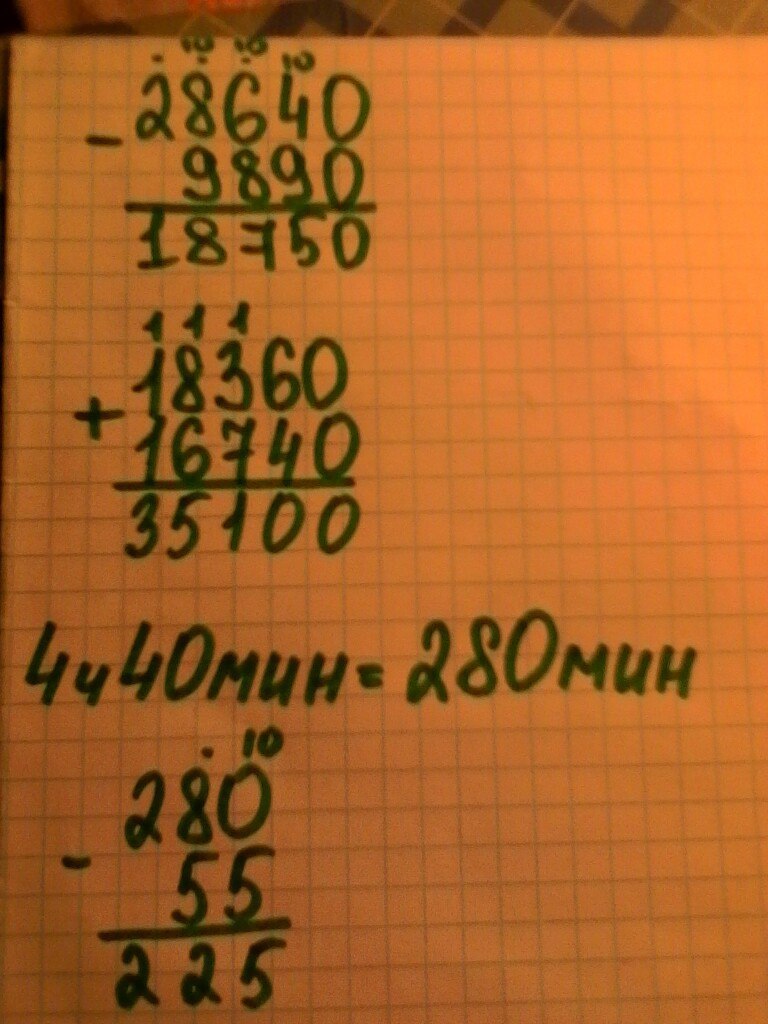 . 10 10 10
28640
- 9890
18750
1 1 1
18360
+ 16740
35100
4ч40мин=280мин
. 10
280
- 55
225